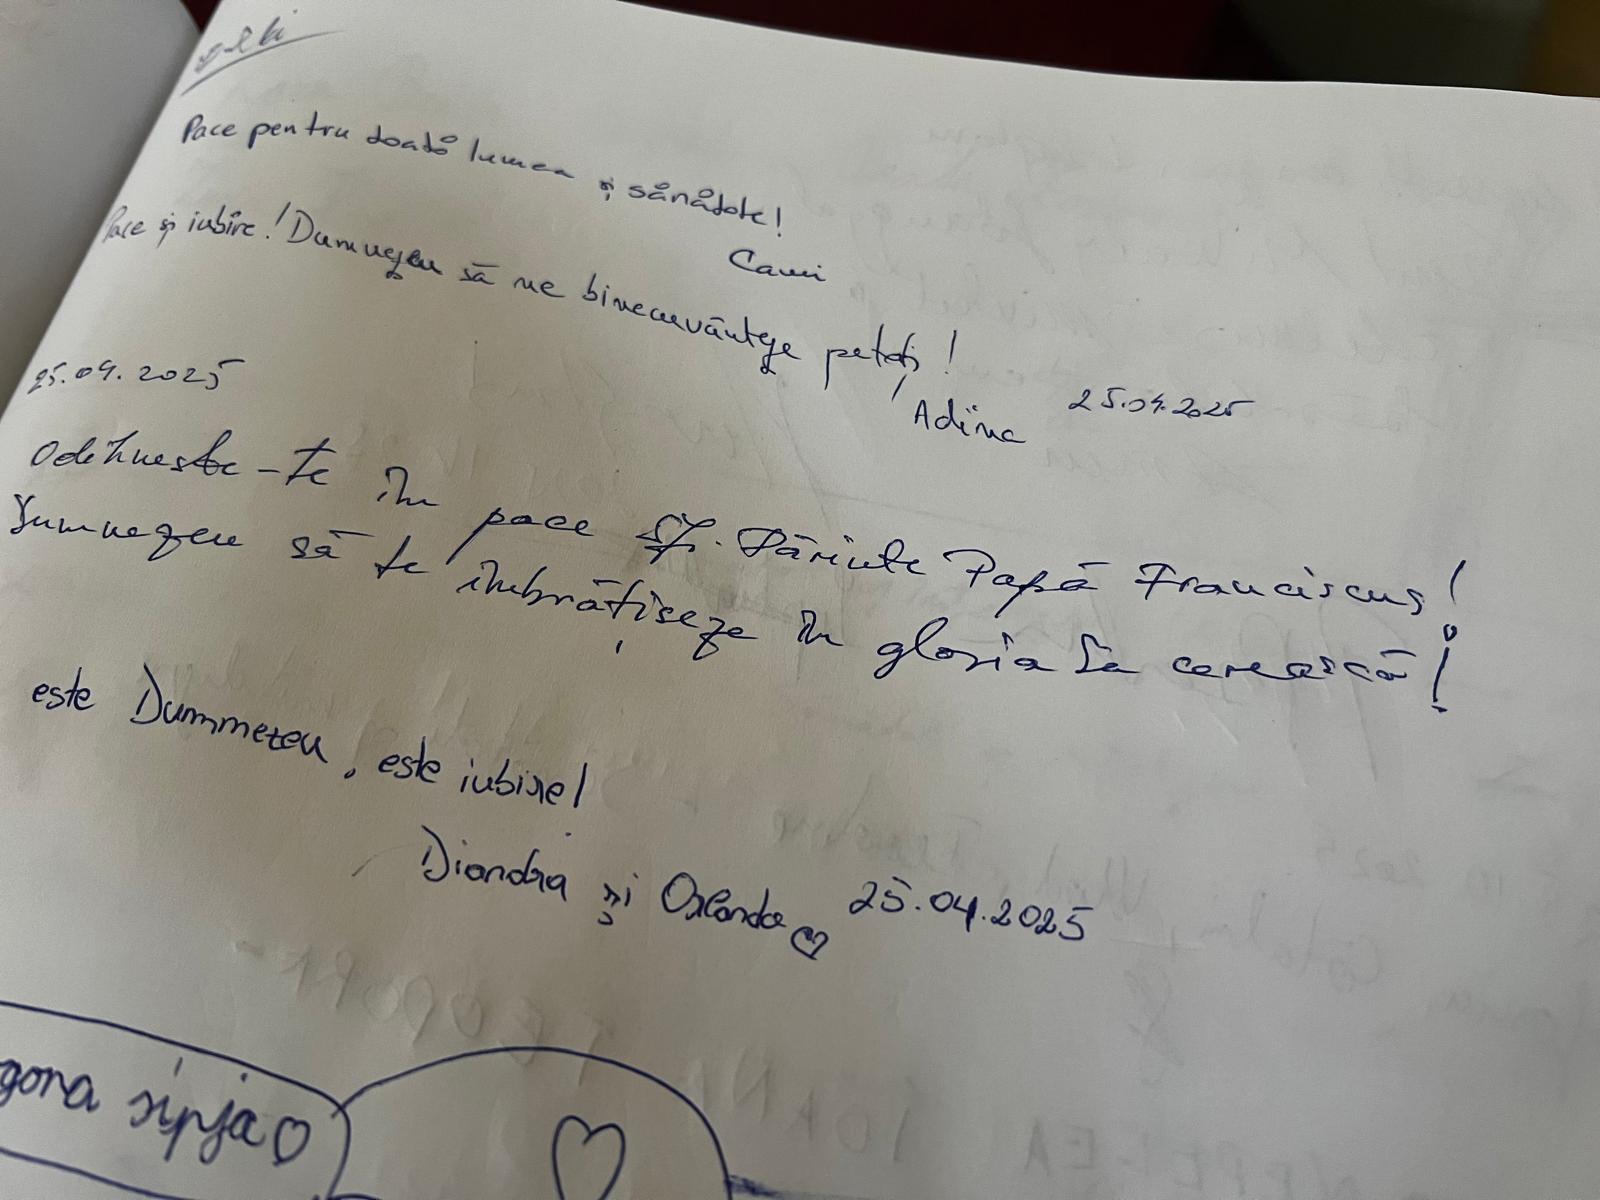 Pace pentru toată lumea și sănătate!
Cami
Pace și iubire! Dumnezeu să ne binecuvânteze petoți!
Adina 25.04.2025
25.04.2025
Odihneste-te în pace Sf. Părinte Papă Franciscus!
Dumnezeu să te îmbrățiseze în gloria Sa cerească!
este Dummezeu, este iubire!
Diandra și Orlando ♡ 25.04.2025
gora sipja ♡
♡